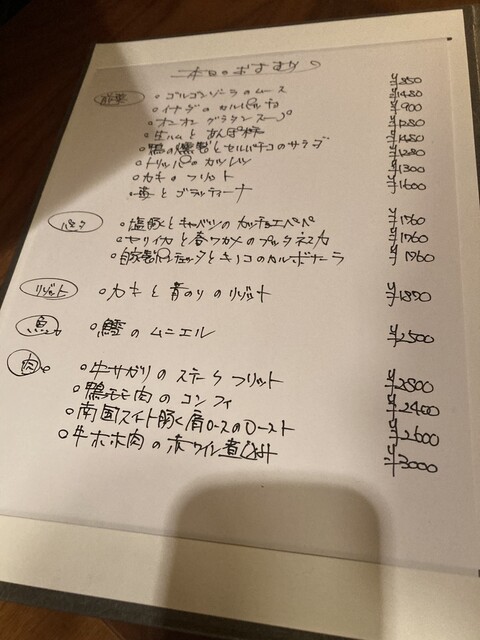 本日のおすすめ
前菜 ○ゴルゴンゾーラのムース ¥850
○イナダのカルパッチョ ¥1480
○オニオングラタンスープ ¥900
○生ハムと ¥1280
○鴨の燻製とセルバチコのサラダ ¥1480
○トリッパのカツレツ ¥1280
○カキのフリット ¥1300
○苺とブラッティーナ ¥1600
パスタ ○塩豚とキャベツのカッチョエペペ ¥1760
○ヤリイカと春ワカメのプッタネスカ ¥1760
○自家製パンチェッタとキノコのカルボナーラ ¥1760
リゾット ○カキと青のりのリゾット ¥1870
魚 ○鱈のムニエル ¥2500
肉 ○牛サガリのステークフリット ¥2800
○鴨モモ肉のコンフィ ¥2400
○南国スイート豚肩ロースのロースト ¥2600
○牛ホホ肉の赤ワイン煮込み ¥3000